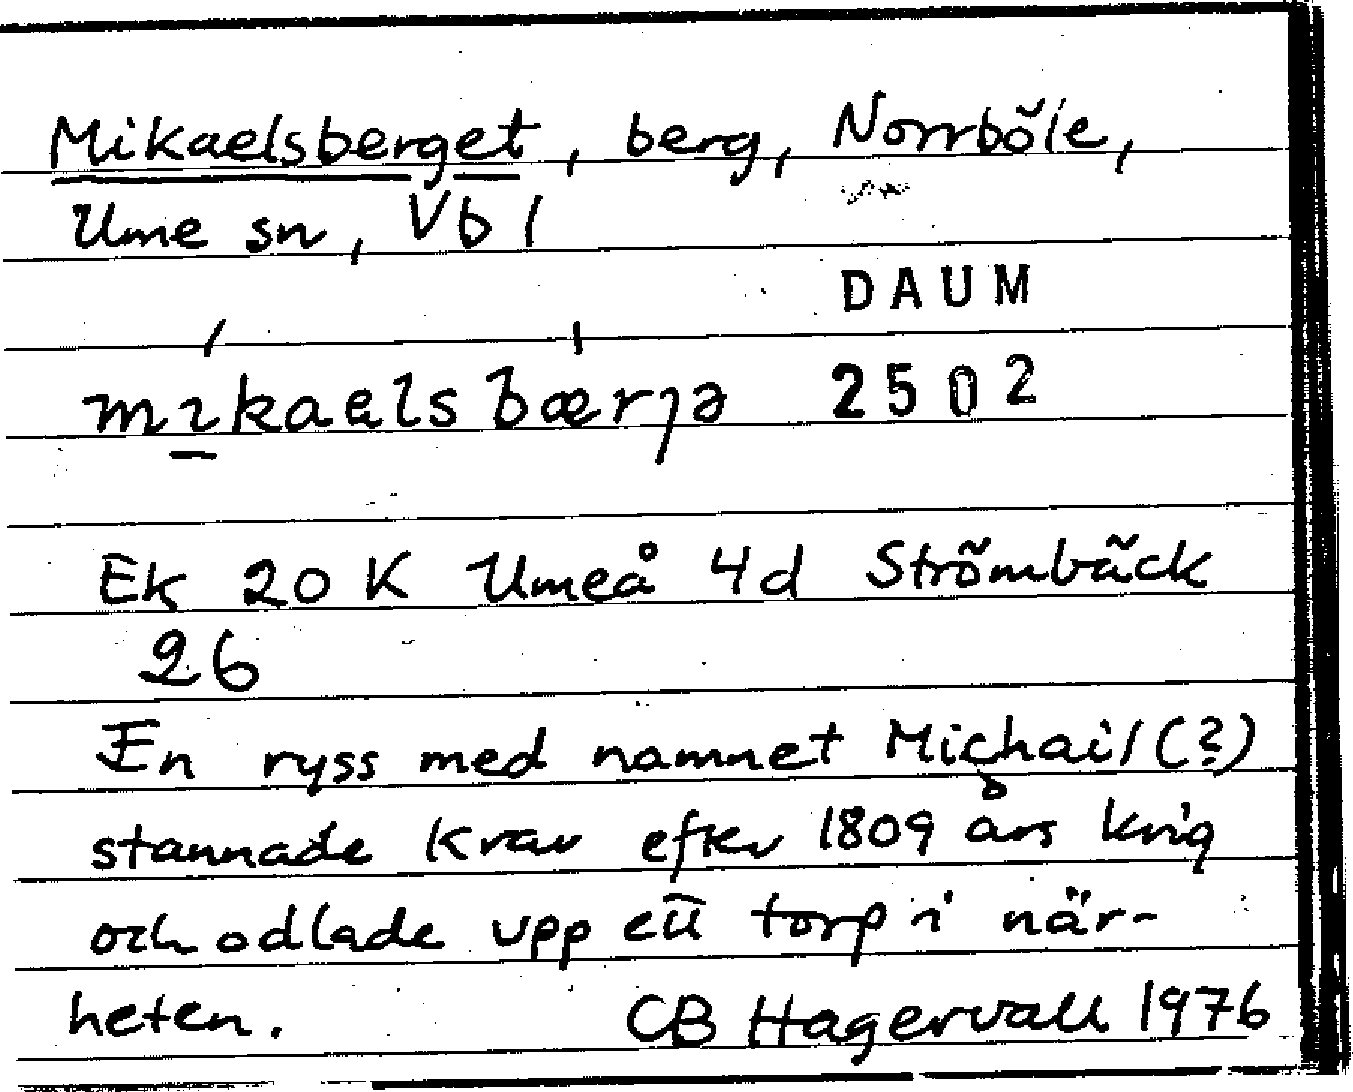 Mikaelsberget, berg, Norrböle,
Ume sn, Vb l
DAUM
mɩkaɐlsbærjə 2502
Ek 20 K Umeå 4d Strömbäck
26
En ryss med namnet Michail (?)
stannade kvar efter 1809 års krig
och odlade upp ett torp i när-
heten. CB Hagervall 1976